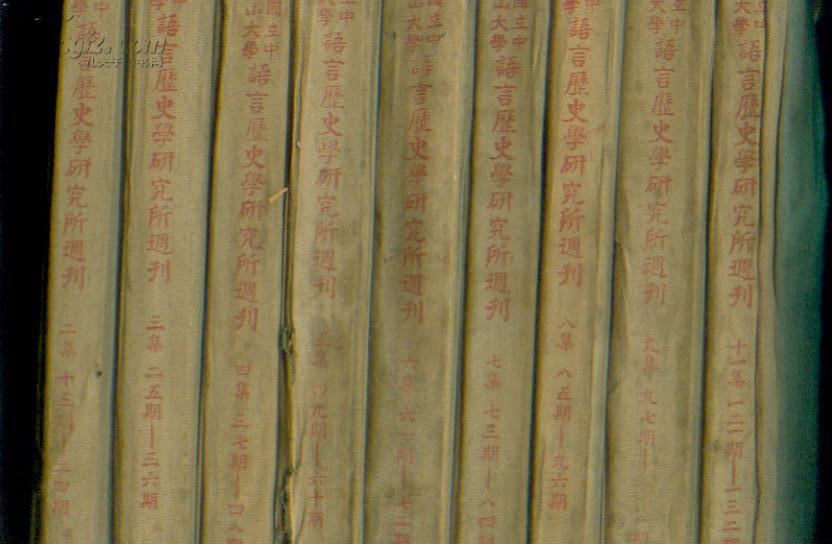 中
學
語言歷史學研究所週刊 二集 十三期—二四期
中
學
語言歷史學研究所週刊 三集 二五期—三六期
國立中
山大學
語言歷史學研究所週刊 四集 三七期—四八期
立中
大學
語言歷史學研究所週刊 五集 四九期—六十期
國立中
山大學
語言歷史學研究所週刊 六集 六一期—七二期
國立中
山大學
語言歷史學研究所週刊 七集 七三期—八四期
中
學
語言歷史學研究所週刊 八集 八五期—九六期
立中
大學
語言歷史學研究所週刊 九集 九七期—一
立中
大學
語言歷史學研究所週刊 十一集 一二一期—一三二